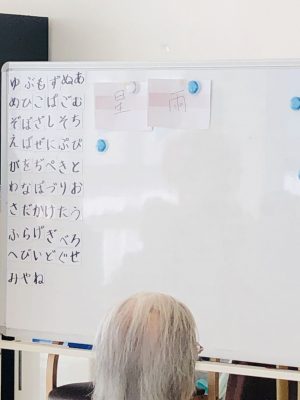 ゆぶもずぬあ
めひこぱごむ
ぞぼざしそち
えばぜにぷぴ
がをぢぺきと
わなぽづりお
さだかけたう
ふらげぎべろ
へびいどぐせ
みやね
星
雨